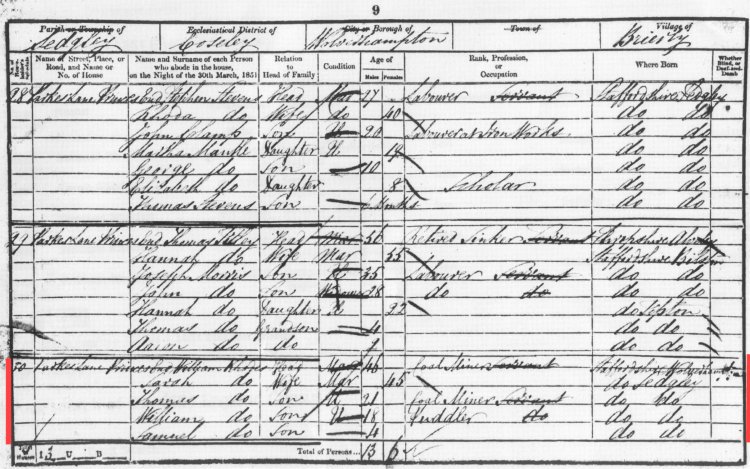 9
Parish or Township of Ecclesiastical District of City or Borough of Town of Village of
Sedgley Coseley Wolverhampton Brierly
No. of Householder's Schedule Name of Street, Place, or Road, and Name or No. of House Name and Surname of each Person who abode in the house, on the Night of the 30th March, 1851 Relation to Head of Family Condition Age of Males Females Rank, Profession, or Occupation Where Born Whether Blind, or Deaf-and-Dumb
28 Parkes Lane Stephen Stevens Head Mar 27 Labourer Staffordshire Sedgley
Rhoda do Wife do 40 do do
John Son U 20 Labourer at Iron Works do do
Martha Daughter U do do
George do Son 10 do do
Elizabeth do Daughter 8 Scholar do do
Thomas Stevens Son 6 Mnths do do
29 Parkes Lane Thomas Tilley Head Mar 56 Retired Sinker Servant Shropshire
Hannah do Wife Mar 55 Staffordshire Bilston
Joseph Morris Son U 35 Labourer Servant do do
John do Son Widower 28 do do do do
Hannah do Daughter U 22 do Tipton
Thomas do Grandson 4 do do
Aaron do do 1 do do
30 Parkes Lane William Head Mar 46 Coal Miner Servant Staffordshire
Sarah do Wife Mar 45 do Sedgley
Thomas do Son U 21 Coal Miner Servant do do
William do Son U 18 Puddler do do do
Samuel do Son 4 do do
Total Houses I 3 U B Total of Persons... 13 6